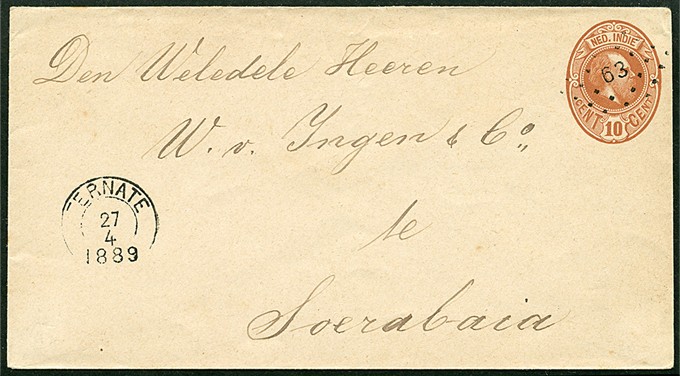 NED. INDIE
63
CENT 10 CENT
Den Weledele Heeren
W. v. Ingen & Co,
TERNATE
27
4
1889
te
Soerabaia